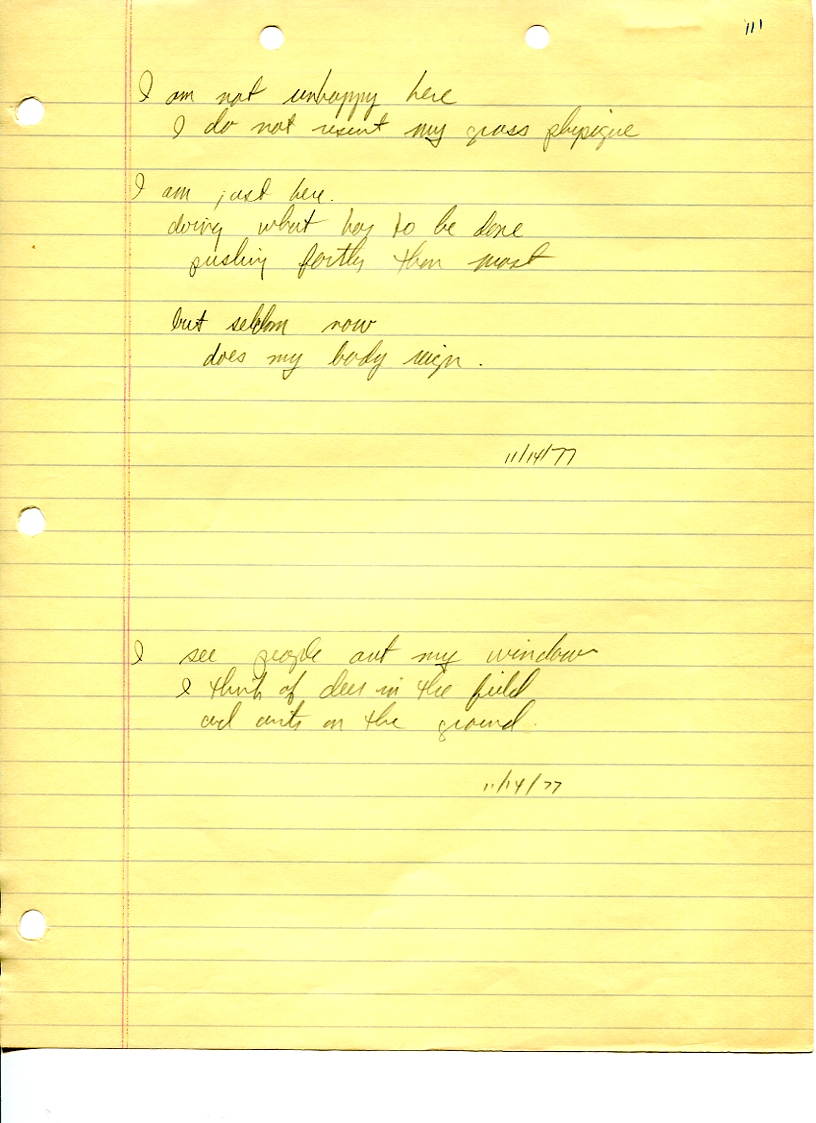 111
I am not unhappy here
I do not resent my gross physique
I am just here.
doing what has to be done
pushing farther than most
but seldom now
does my body reign.
11/14/77
I see people out my window
I think of deer in the field
and ants on the ground.
11/14/77